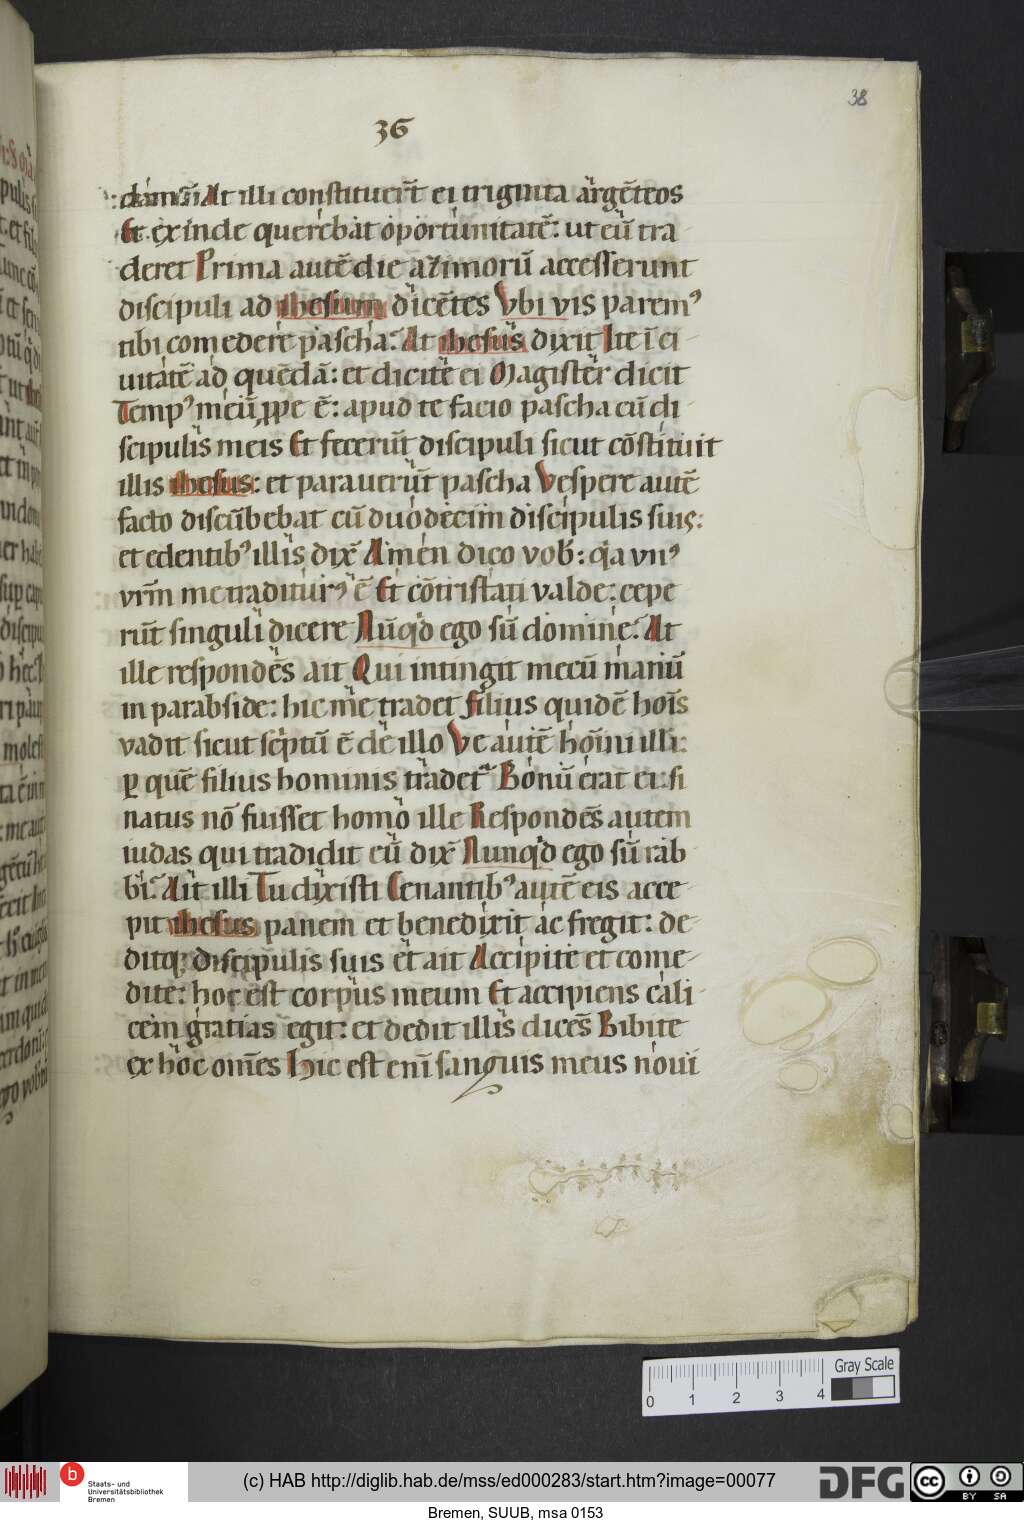 38
36
At illi constituer̄t ei triginta argēteos
Et exinde querebat oportunitatē: ut eū tra-
deret Prima autē die azimorū accesserunt
discipuli ad ihesum dicētes Vbi vis paremꝰ
tibi comedere pascha? At ihesus dixit Ite ī ci-
uitatē ad quēdā: et dicite ei Magister dicit
Tempꝰ meū ꝓpe ē: apud te facio pascha cū di-
scipulis meis Et fecerūt discipuli sicut cōstituit
illis ihesus: et parauerūt pascha Vespere autē
facto discūbebat cū duodecim discipulis suis:
et edentibꝰ illis dix̄ Amen dico vob̄: qia vnꝰ
vrm̄ me traditurꝰ ē Et cōtristati valde: cepe
rūt singuli dicere Nūqid ego sū domine? At
ille respondēs ait Qui intingit mecū manū
in parabside: hic me tradet Filius quidē hoīs
vadit sicut sc̄ptū ē de illo Ve autē hoīni illi:
ꝑ quē filius hominis tradet᷑ Bonū erat ei: si
natus nō fuisset homo ille Respondēs autem
iudas qui tradidit eū dix̄ Nunqid ego sū rab
bi? Ait illi Tu dixisti Cenantibꝰ autē eis acce
pit ihesus panem et benedixit ac fregit: de-
ditqꝫ discipulis suis et ait Accipite et come-
dite: hoc est corpus meum Et accipiens cali-
cem gratias egit: et dedit illis dicēs Bibite
ex hoc om̄es Hic est enī sanguis meus noui
0 1 2 3 4 Gray Scale
b Staats- und
Universitätsbibliothek
Bremen
(c) HAB http://diglib.hab.de/mss/ed000283/start.htm?image=00077
DFG
cc BY SA
Bremen, SUUB, msa 0153